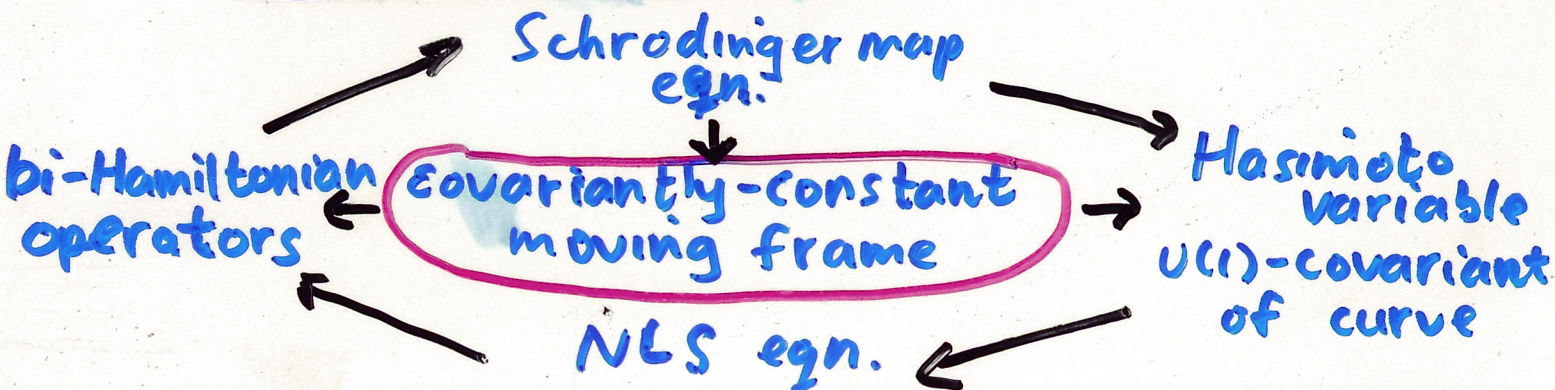 Schrodinger map
eqn.
bi-Hamiltonian
operators
covariantly-constant
moving frame
Hasimoto
variable
U(1)-covariant
of curve
NLS eqn.